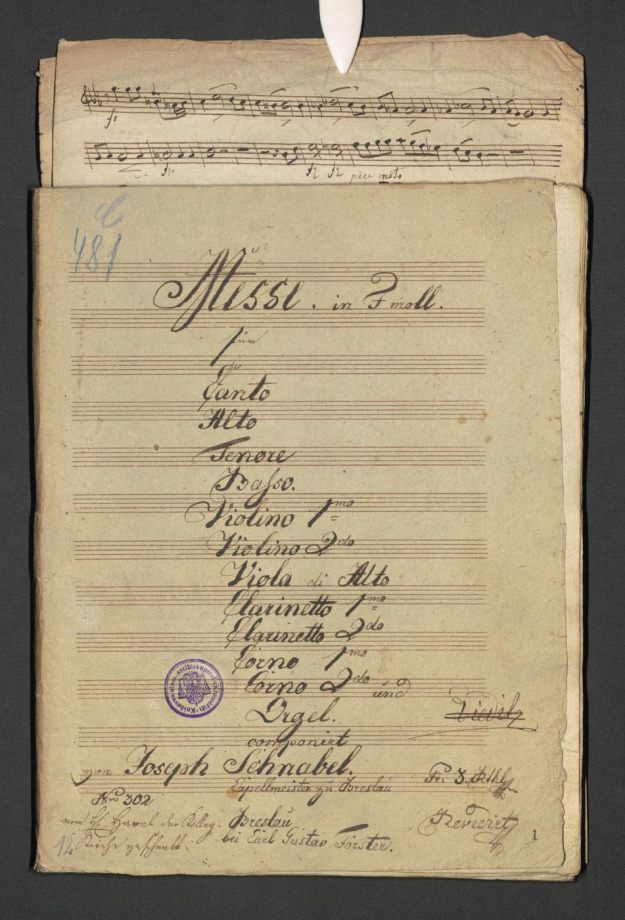 più moto
481
Messe. in F moll.
für
Canto
Alto
Tenore
Basso.
Violino 1mo
Violino 2do
Viola di Alto
Clarinetto 1mo
Clarinetto 2do
Corno 1mo
Corno 2do und
Orgel.
componirt
von Joseph Schnabel.
Capellmeister zu Breslau
Nro 302
Breslau
bei Carl Gustav Förster.
Revidirt
12
1